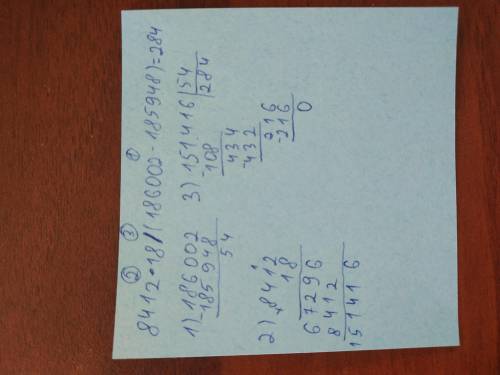 ② ③ ①
8412•18/(186002-185948)=284
1) 186002
-185948
54
2) 8412
×18
67296
8412
151416
3) 151416|54
-108 |284
434
-432
216
-216
0